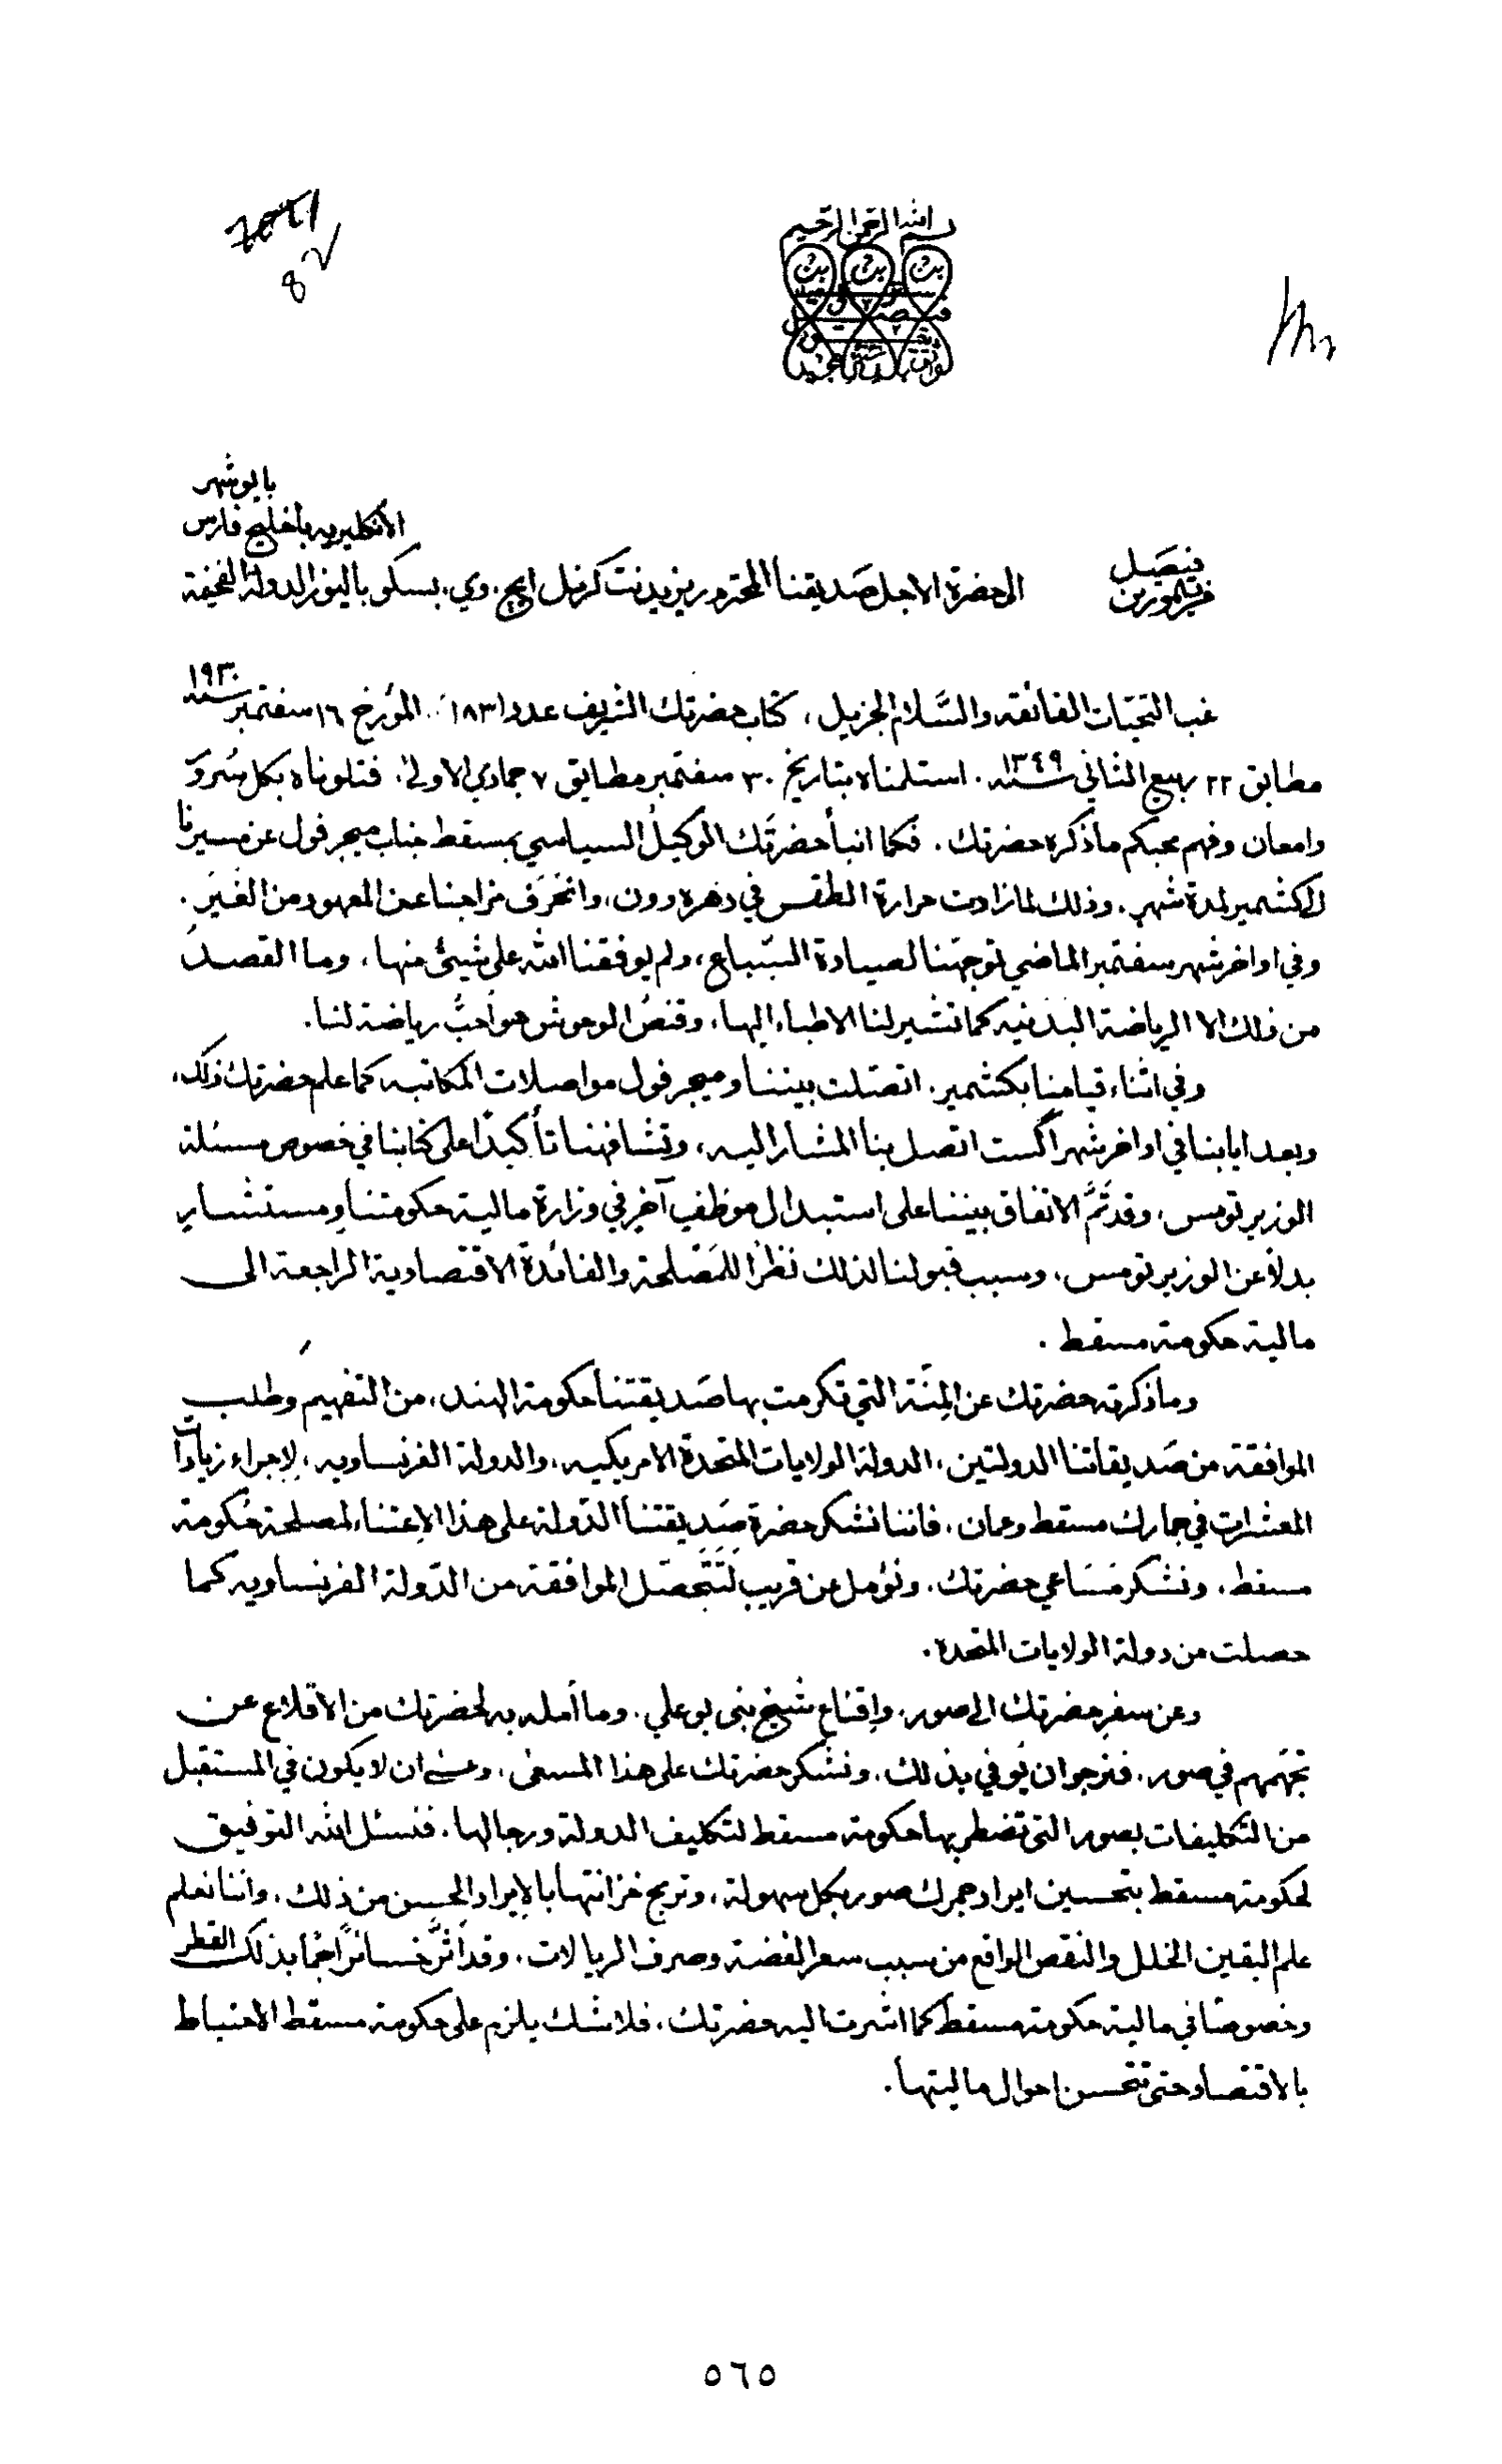 بسم الله الرحمن الرحيم
بابوشهر
الأنكليزيه بأخليج فارس
الى حضرة الاجل صديقنا المحترم ريزيدنت كرنل ايچ. وي. بسكو باليوز الدولة الفخيمة
فيصل
من تيمور بن
غب التحيّات الفائقه والسَّلام الجزيل، كتاب حضرتك الشريف عدد ١٨٣١ المؤرخ ١٦ سفتمبر سنه ١٩٣٠
مطابق ٢٢ ربيع الثاني سنه ١٣٤٩. استلمناه بتاريخ ٣٠ سفتمبر مطابق ٧ جمادي الاولىٰ. فتلوناه بكل سُرور
وامعان وفهم محبكم ماذكره حضرتك. فكما انبأ حضرتَك الوكيلُ السياسي بمسقط جناب ميجر فول عن مسيرنا
الى كشمير لمدة شهر. وذلك لما زادت حرارة الطقس في دهره دون، وانحَرَف مزاجنا عن المعهود من الغَيَر.
وفي اواخر شهر سفتمبر الماضي توجهّنا لصيادة السّباع، ولم يوفقنا الله على شيئ منها، وما القصدُ
من ذلك الا الرياضة البدنيه كما تشير لنا الاطباء اليها، وقنصُ الوحوش هو احبُّ رياضة لنا.
وفي اثناء قيامنا بكشمير. اتصَلت بيننا وميجر فول مواصلات المكاتبه كما علم حضرتك ذلك،
وبعد ايابنا في اواخر شهر اگست اتصل بنا المشار اليه، وتشافهنا تأكيدًا على كتابنا في خصوص مسئلة
الوزير تومس، وقد تَمَّ الاتفاق بيننا على استبدال موظف آخر في وزارة مالية حكومتنا ومستشار
بدلاً عن الوزير تومس، وسبب قبولنا لذلك نظرًا للمَصْلحة والفائدة الاقتصادية الراجعة الى
مالية حكومة مسقط.
وما ذكرته حضرتك عن المِنَّة التي تكرمت بها صَديقتنا حكومة الهند، من التفهيم وطلب
الموافقة من صَديقاتنا الدولتين، الدولة الولايات المتحدة الامريكيه، والدولة الفرنساويه، لإجراء زيادات
المعشّرات في جمارك مسقط وعمان، فاننا نشكر حضرة صَديقتنا الدّولة على هذا الإعتناء لمصلحة حُكومة
مسقط، ونشكر مَسَاعي حضرتك. ونؤمل عن قريب لَتَتَحَصّل الموافقة من الدّولة الفرنساويه كما
حصلت من دولة الولايات المتحده.
وعن سفرِ حضرتك الى صور، وإقناع شيخ بنى بوعلي، وما أمله به لحضرتك من الاقلاع عن
تجهّمهم في صور، فنرجو ان يُوفي بذلك، ونشكر حضرتك على هذا المسعى، وعسىٰ ان لا يكون في المستقبل
من التكليفات بصور التى تضطر بها حكومة مسقط لتكليف الدولة ورجالها، فنسئل الله التوفيق
لحكومة مسقط بتحسين ايراد جمرك صور بكل سهولة، وتربح خزانتها بالإيراد الحسن من ذلك، واننا نعلم
علم اليقين الخلل والنقص الواقع من سبب سعر الفضة وصرف الريالات، وقد اثَّر خسائرًا جمًا بذلك القطر
وخصوصًا في مالية حكومة مسقط كما اشرت اليه حضرتك، فلا شك يلزم على حكومة مسقط الاحتياط
بالاقتصاد حتى تتحسن احوال ماليتها.
٥٦٥